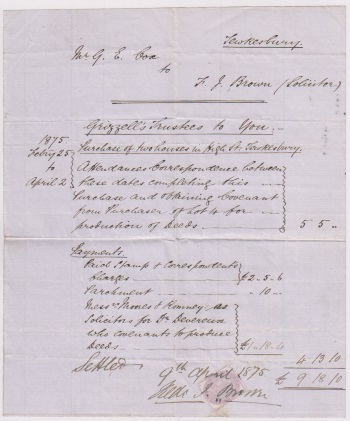 Tewkesbury
Mr G. E. Cox
to
F. J. Brown (Solicitor)
Grizzell's Trustees to You
1875
Purchase of two houses in High St. Tewkesbury.
Feby 25
to
April 2
Attendances Correspondence between
these dates completing this
Purchase and obtaining Covenant
from Purchaser of Lot 4 for
production of Deeds 5 5 "
Payments
Paid Stamp & Correspondents
Charges £2-5-6
Parchment - 10 -
Messrs Moores & Romney, as
Solicitors for Dr Devereux
who covenants to produce
Deeds £1-18-4
4 13 10
Settled £ 9 18 10
9th April 1875
J. Brown